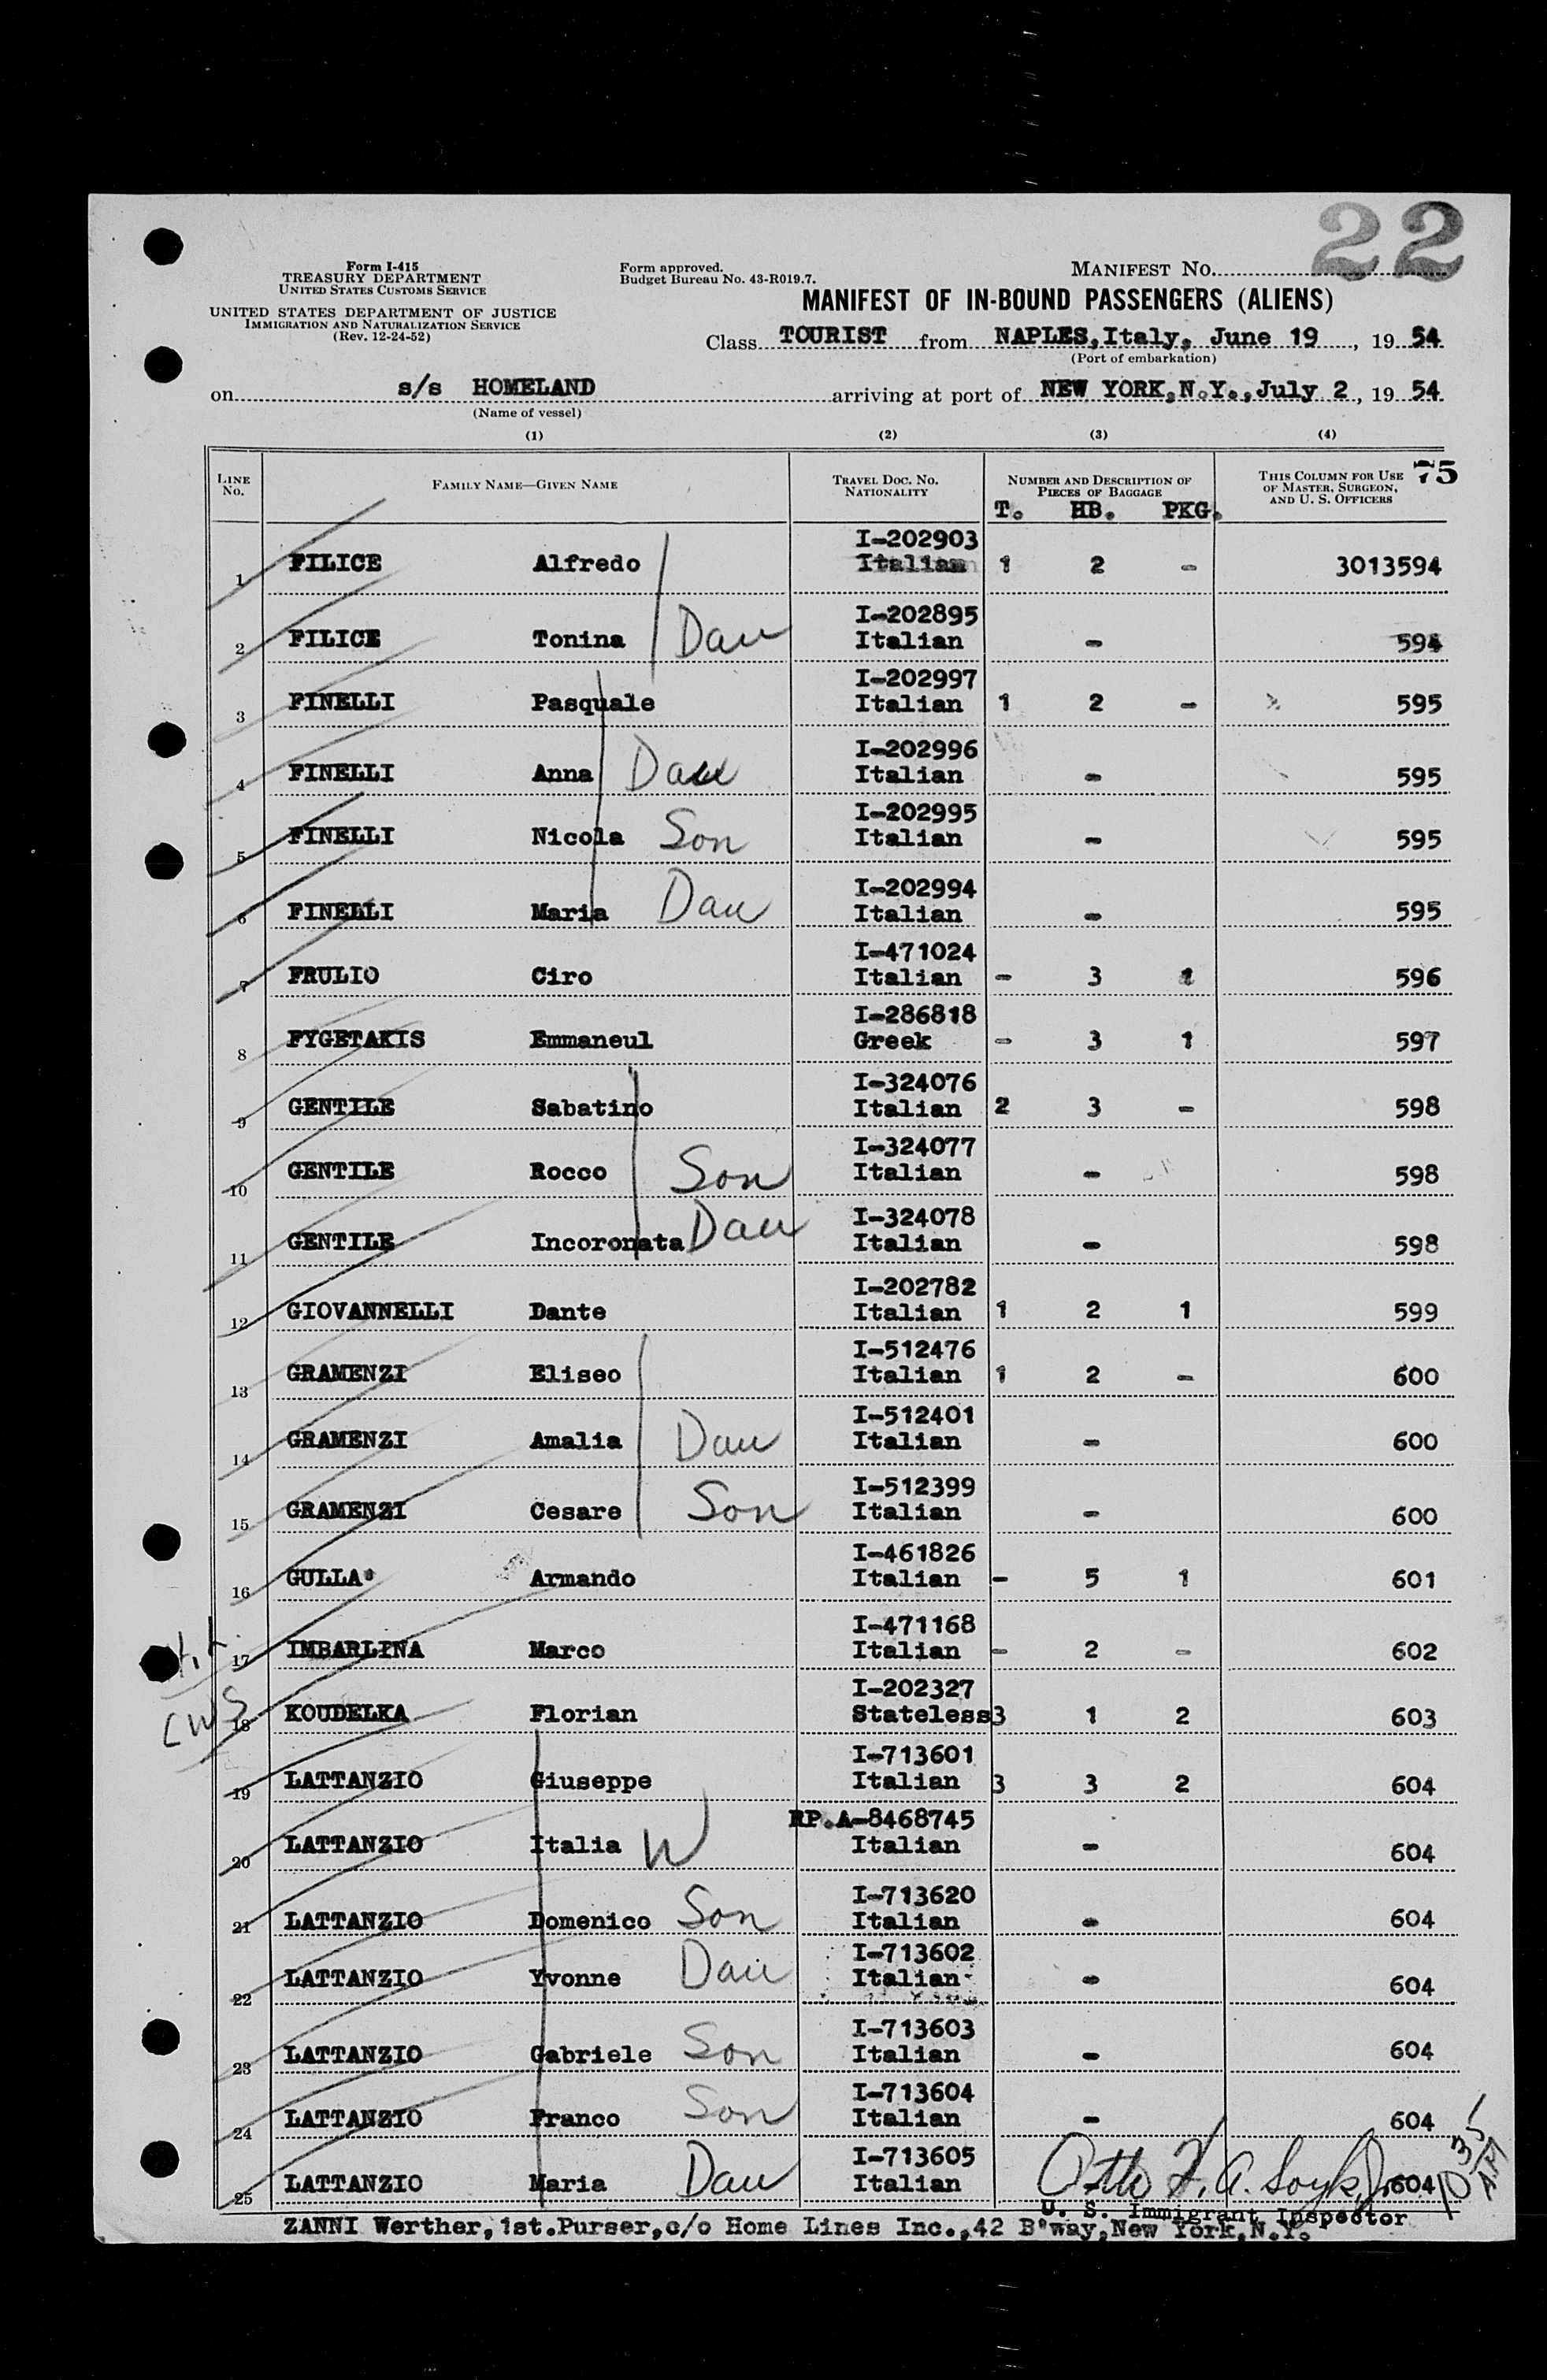 22
Form I-415
TREASURY DEPARTMENT
UNITED STATES CUSTOMS SERVICE
UNITED STATES DEPARTMENT OF JUSTICE
IMMIGRATION AND NATURALIZATION SERVICE
(Rev. 12-24-52)
Form approved.
Budget Bureau No. 43-R019.7.
MANIFEST NO.
MANIFEST OF IN-BOUND PASSENGERS (ALIENS)
Class TOURIST from NAPLES, Italy, June 19, 19 54
(Port of embarkation)
on s/s HOMELAND arriving at port of NEW YORK, N.Y., July 2, 19 54
(Name of vessel)
(1) (2) (3) (4)
LINE NO. FAMILY NAME—GIVEN NAME TRAVEL DOC. NO. NATIONALITY NUMBER AND DESCRIPTION OF PIECES OF BAGGAGE THIS COLUMN FOR USE OF MASTER, SURGEON, AND U. S. OFFICERS 75
T. HB. PKG.
I-202903
1 FILICE Alfredo Italian 1 2 - 3013594
I-202895
2 FILICE Tonina Dau Italian - 594
I-202997
3 FINELLI Pasquale Italian 1 2 - 595
I-202996
4 FINELLI Anna Dau Italian - 595
I-202995
5 FINELLI Nicola Son Italian - 595
I-202994
6 FINELLI Maria Dau Italian - 595
I-471024
7 FRULIO Ciro Italian - 3 1 596
I-286818
8 FYGETAKIS Emmaneul Greek - 3 1 597
I-324076
9 GENTILE Sabatino Italian 2 3 - 598
I-324077
10 GENTILE Rocco Son Italian - 598
I-324078
11 GENTILE Incoronata Dau Italian - 598
I-202782
12 GIOVANNELLI Dante Italian 1 2 1 599
I-512476
13 GRAMENZI Eliseo Italian 1 2 - 600
I-512401
14 GRAMENZI Amalia Dau Italian - 600
I-512399
15 GRAMENZI Cesare Son Italian - 600
I-461826
16 GULLA' Armando Italian - 5 1 601
I-471168
17 IMBARLINA Marco Italian - 2 - 602
I-202327
CWS 18 KOUDELKA Florian Stateless 3 1 2 603
I-713601
19 LATTANZIO Giuseppe Italian 3 3 2 604
RP.A-8468745
20 LATTANZIO Italia W Italian - 604
I-713620
21 LATTANZIO Domenico Son Italian - 604
I-713602
22 LATTANZIO Yvonne Dau Italian - 604
I-713603
23 LATTANZIO Gabriele Son Italian - 604
I-713604
24 LATTANZIO Franco Son Italian - 604
I-713605
25 LATTANZIO Maria Dau Italian 604
U. S. Immigrant Inspector
ZANNI Werther, 1st.Purser, c/o Home Lines Inc., 42 B'way, New York, N.Y.